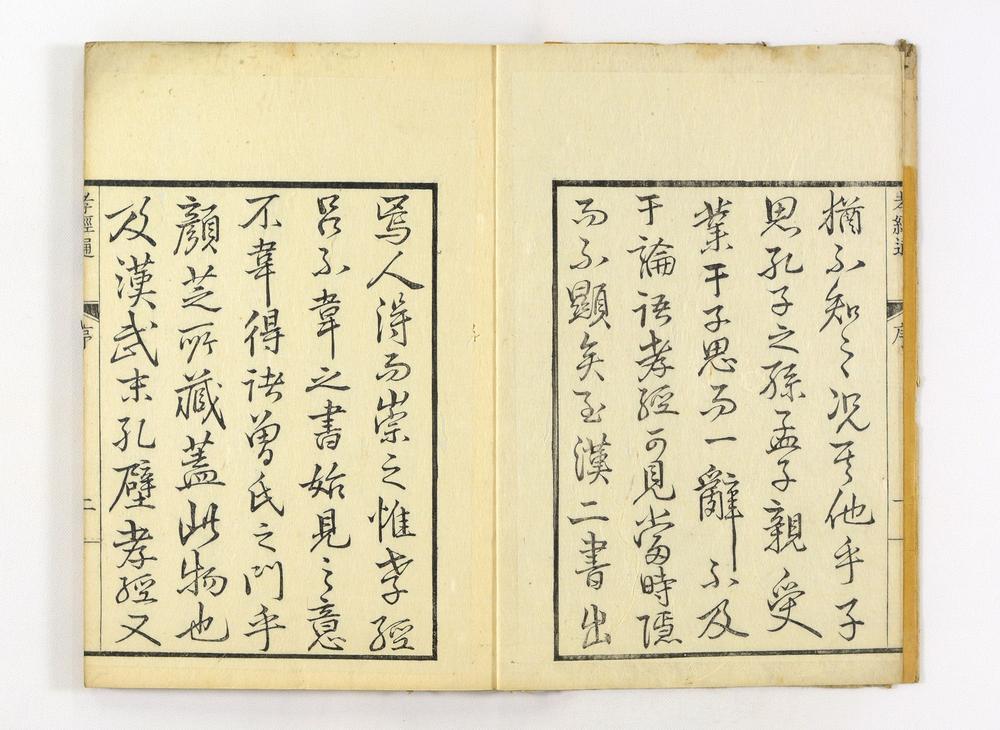 猶不知之況其他乎子
思孔子之孫孟子親受
業于子思而一辭不及
于論語孝經可見當時隱
而不顯矣至漢二書出
焉人得而崇之惟孝經
呂不韋之書始見之意
不韋得諸曾氏之門乎
顏芝所藏蓋此物也
及漢武末孔壁孝經又
孝經通
序
一
孝經通
序
二